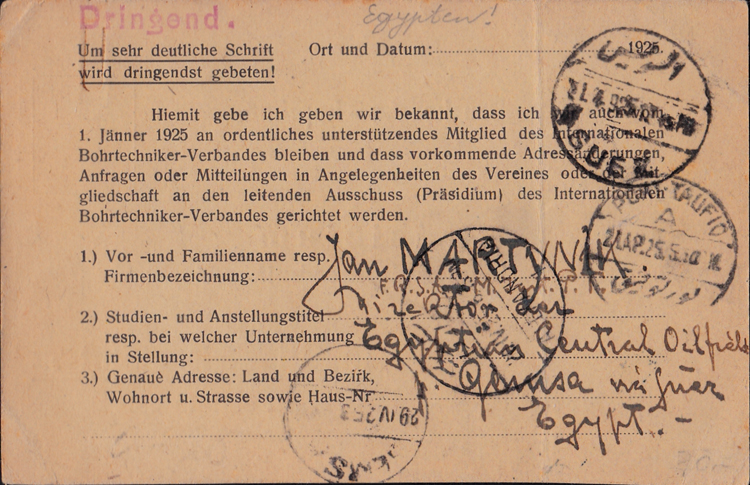 Dringend.
Egypten!
Um sehr deutliche Schrift
wird dringendst gebeten!
Ort und Datum: 1925.
Hiemit gebe ich geben wir bekannt, dass ich auch vom
1. Jänner 1925 an ordentliches unterstützendes Mitglied des Internationalen
Bohrtechniker-Verbandes bleiben und dass vorkommende Adressänderungen,
Anfragen oder Mitteilungen in Angelegenheiten des Vereines oder der Mit-
gliedschaft an den leitenden Ausschuss (Präsidium) des Internationalen
Bohrtechniker-Verbandes gerichtet werden.
SUEZ
TAUFIQ
21 AP. 25
1.) Vor -und Familienname resp.
Firmenbezeichnung:
Jan MARTYNIK.
2.) Studien- und Anstellungstitel
resp. bei welcher Unternehmung
in Stellung:
Director der
Egyptian Central Oilfields
3.) Genauè Adresse: Land und Bezirk,
Wohnort u. Strasse sowie Haus-Nr
Gemsa
Egypt.-
29 IV 25